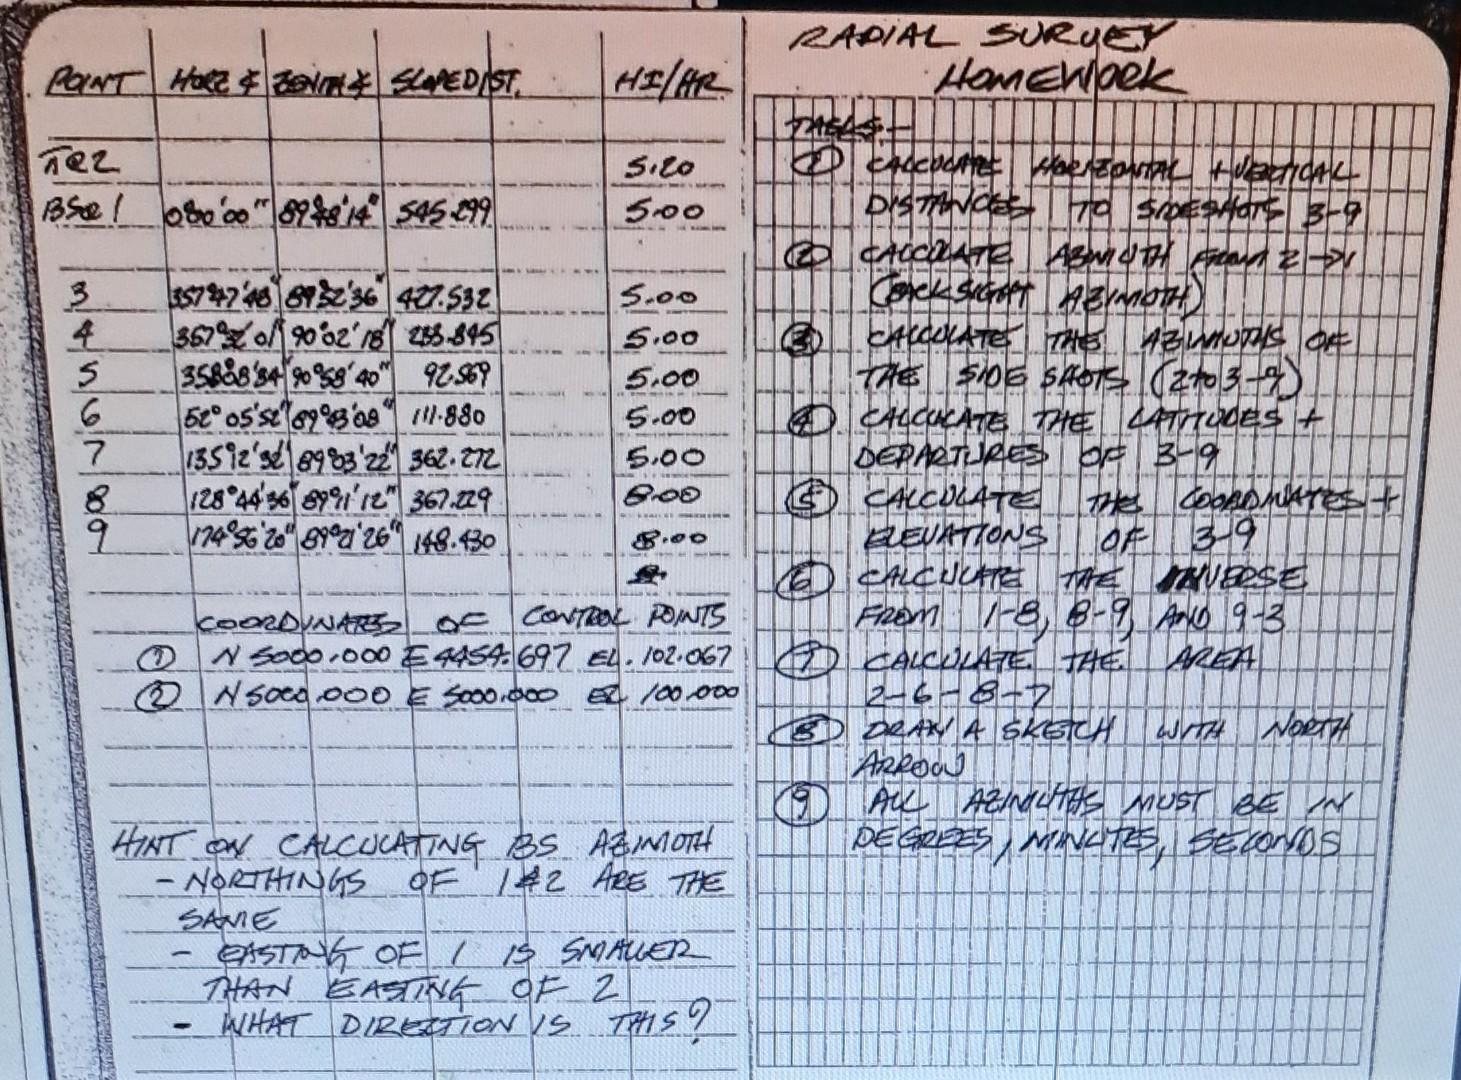 RADIAL SURVEY
HOMEWORK
POINT HORZ ∡ ZENITH ∡ SLOPE DIST. HI/HR
π@2 5.20
BS@1 0°00'00" 89°48'14" 545.299 5.00
3 357°47'48" 89°52'36" 427.532 5.00
4 357°32'01" 90°02'18" 233.845 5.00
5 90°58'40" 92.569 5.00
6 52°05'52" 89°43'08" 111.880 5.00
7 135°12'32" 89°03'22" 362.272 5.00
8 128°44'36" 89°11'12" 367.229 8.00
9 174°56'20" 89°21'26" 148.430 8.00
COORDINATES OF CONTROL POINTS
① N 5000.000 E 4454.697 EL. 102.067
② N 5000.000 E 5000.000 EL 100.000
HINT ON CALCULATING BS AZIMUTH
- NORTHINGS OF 1&2 ARE THE
SAME
- EASTING OF 1 IS SMALLER
THAN EASTING OF 2
- WHAT DIRECTION IS THIS?
TASKS -
① CALCULATE HORIZONTAL + VERTICAL
DISTANCES TO SIDESHOTS 3-9
② CALCULATE AZIMUTH FROM 2→1
(BACKSIGHT AZIMUTH)
③ CALCULATE THE AZIMUTHS OF
THE SIDE SHOTS (2 to 3-9)
④ CALCULATE THE LATITUDES +
DEPARTURES OF 3-9
⑤ CALCULATE THE COORDINATES +
ELEVATIONS OF 3-9
⑥ CALCULATE THE INVERSE
FROM 1-8, 8-9, AND 9-3
⑦ CALCULATE THE AREA
2-6-8-7
⑧ DRAW A SKETCH WITH NORTH
ARROW
⑨ ALL AZIMUTHS MUST BE IN
DEGREES, MINUTES, SECONDS